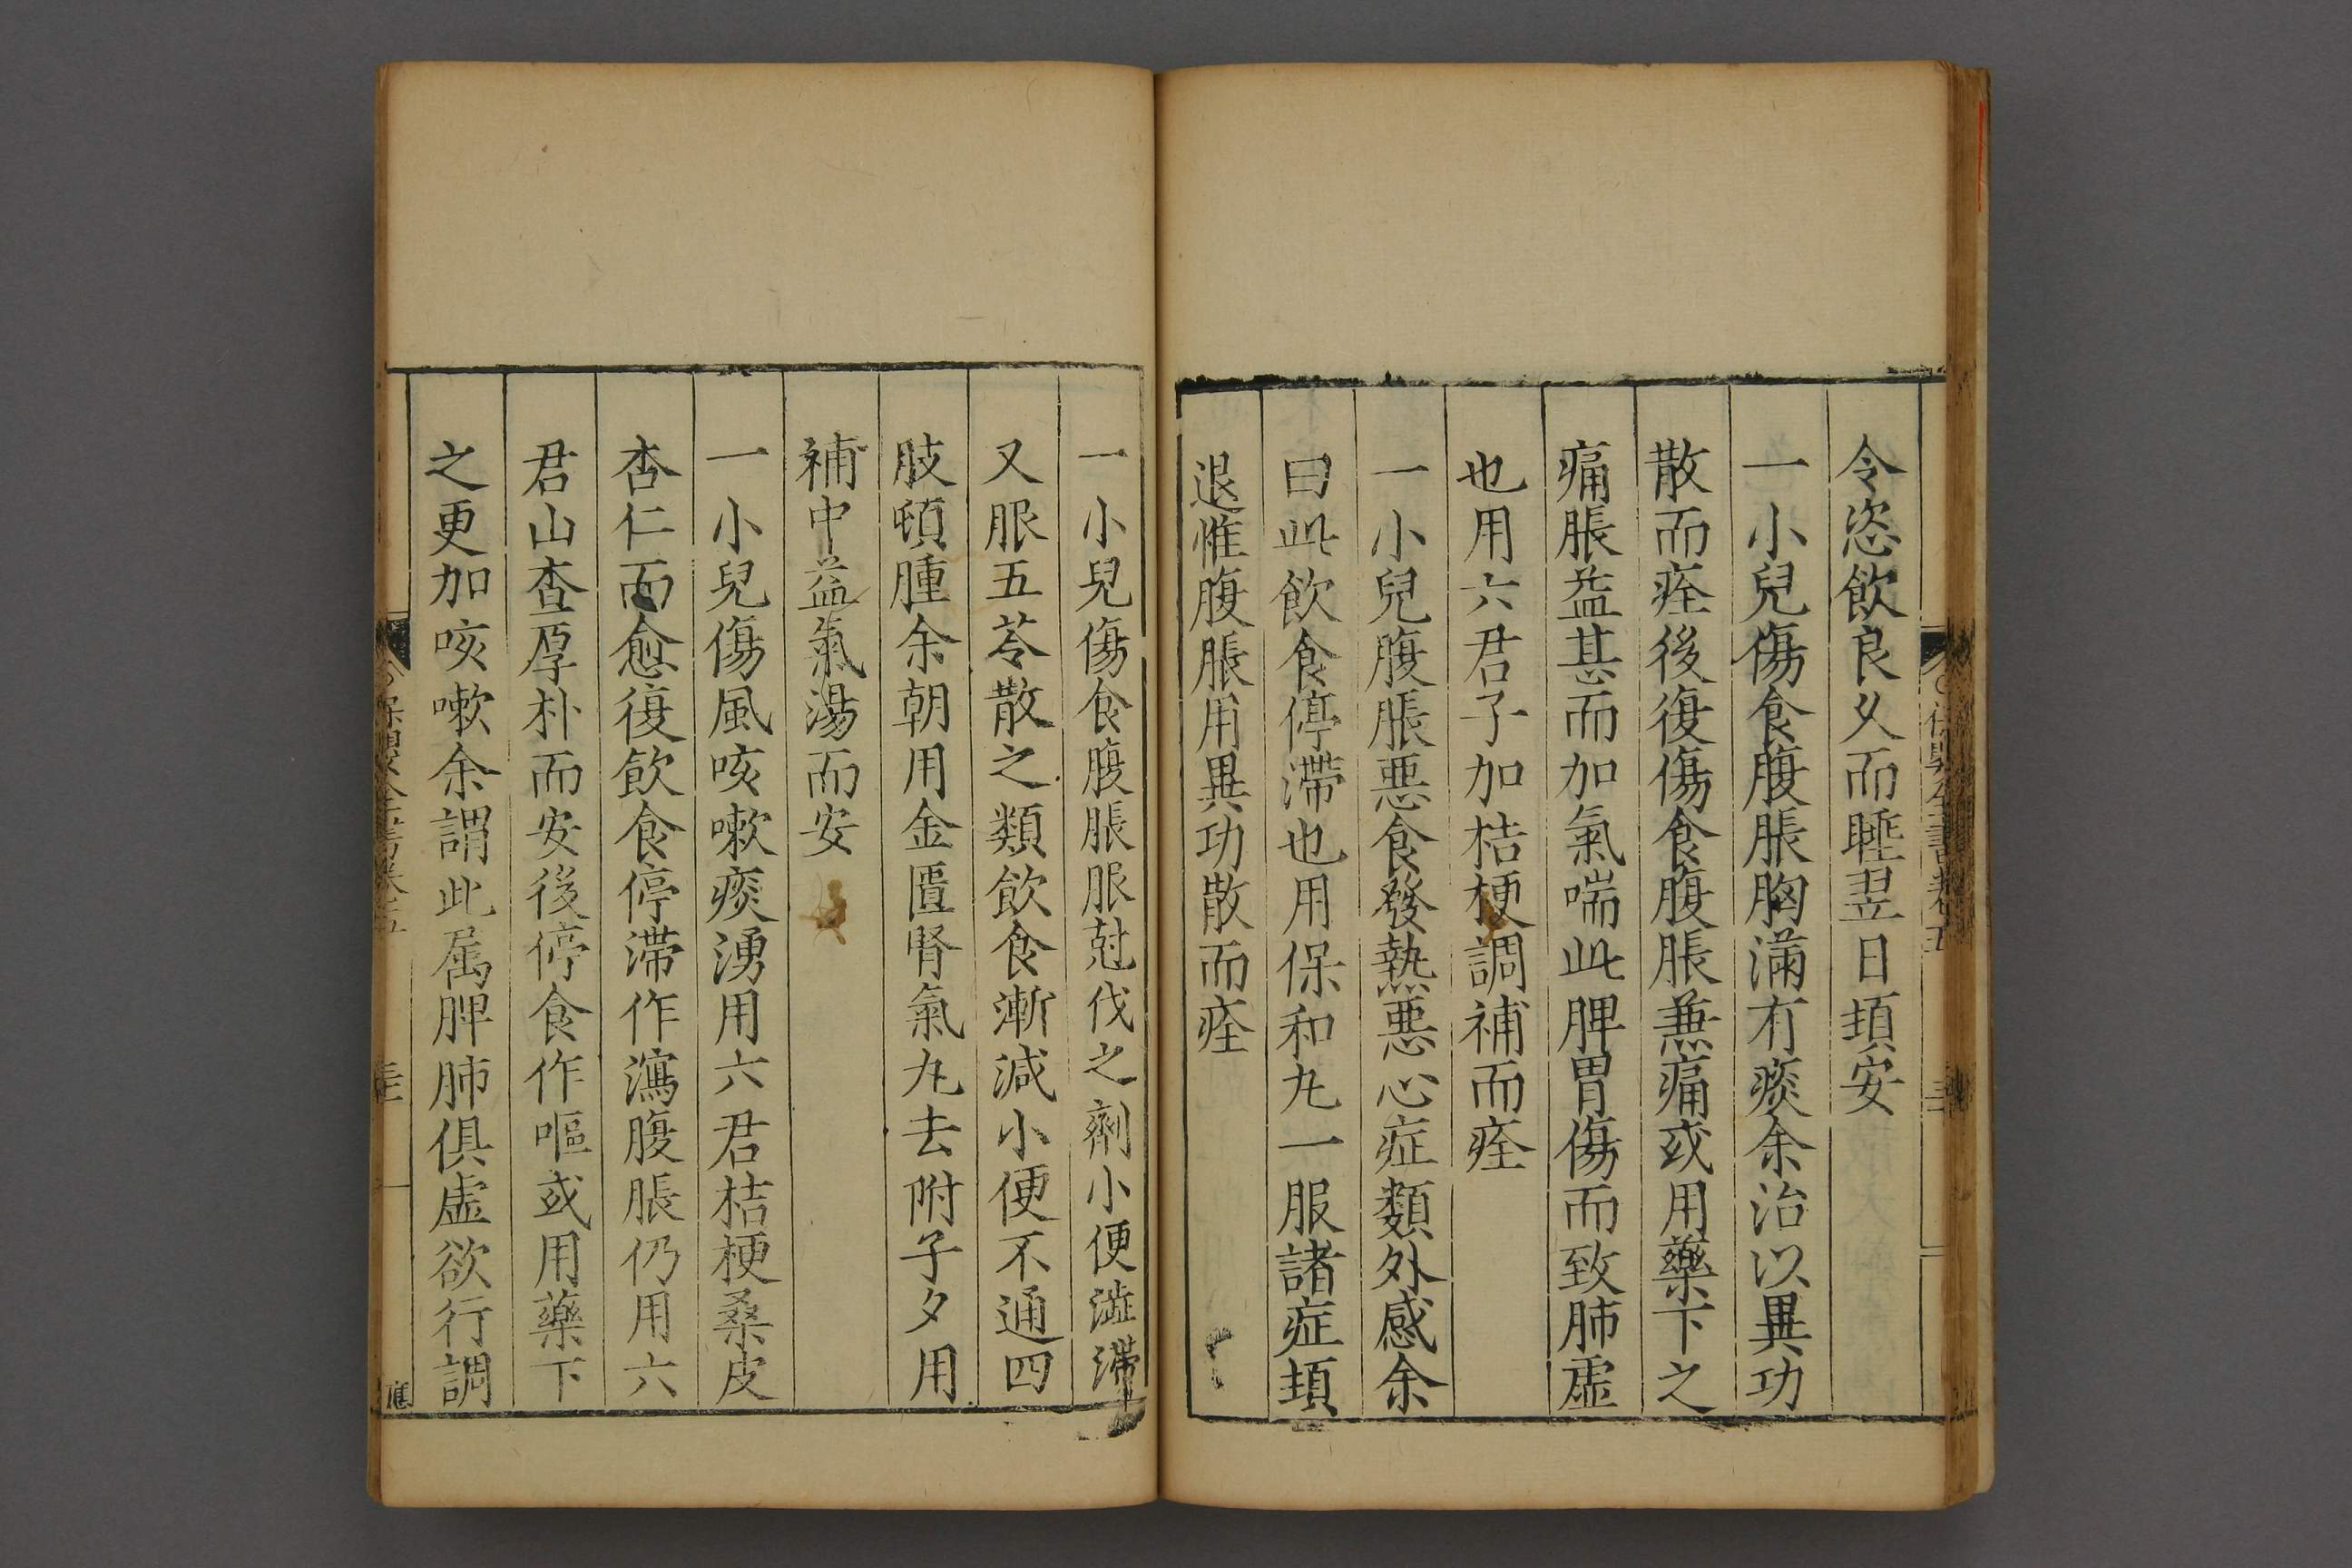 令恣飲良久而睡翌日頓安
一小兒傷食腹脹胸滿有痰余治以異功
散而痊後復傷食腹脹兼痛或用藥下之
痛脹益甚而加氣喘此脾胃傷而致肺虛
也用六君子加桔梗調補而痊
一小兒腹脹惡食發熱惡心症類外感余
曰此飲食停滯也用保和丸一服諸症頓
退惟腹脹用異功散而痊
一小兒傷食腹脹服尅伐之劑小便澁滯
又服五苓散之類飲食漸減小便不通四
肢頓腫余朝用金匱腎氣丸去附子夕用
補中益氣湯而安
一小兒傷風咳嗽痰湧用六君桔梗桑皮
杏仁而愈復飲食停滯作瀉腹脹仍用六
君山査厚朴而安後停食作嘔或用藥下
之更加咳嗽余謂此屬脾肺俱虛欲行調